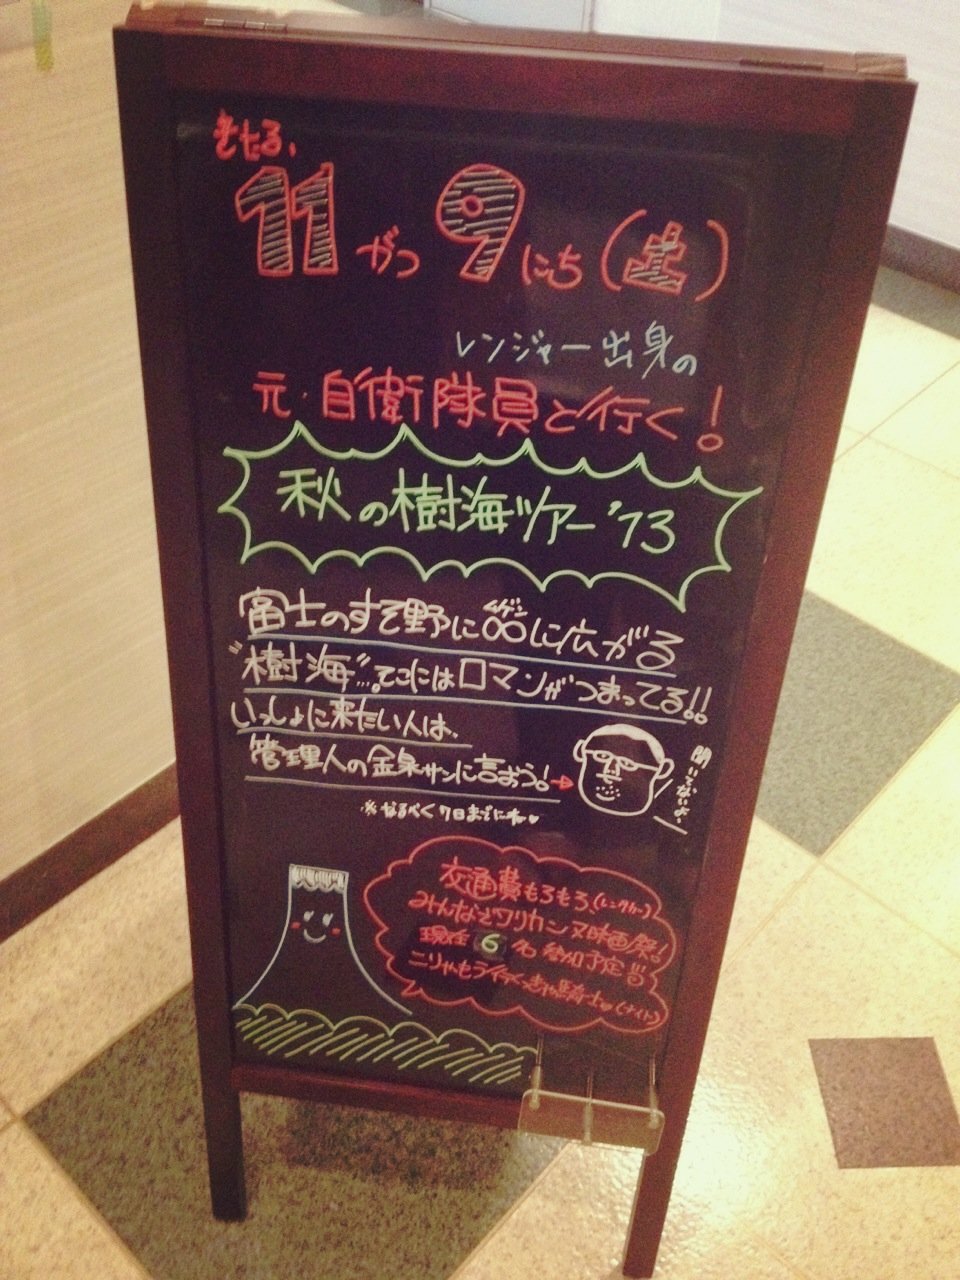 きたる、
11がつ9にち(土)
レンジャー出身の
元・自衛隊員と行く!
秋の樹海ツアー'13
富士のすそ野に∞に広がる
ムゲン
"樹海"…。そこにはロマンがつまってる!!
いっしょに来たい人は、
管理人の金泉サンに言おう!→
聞いてないよ〜
※なるべく7日までにネ♥
交通費もろもろ、(レンタカー)
みんなでワリカンヌ映画祭!
現在 6 名 参加予定!!!
こりゃもう行く
騎士(ナイト)